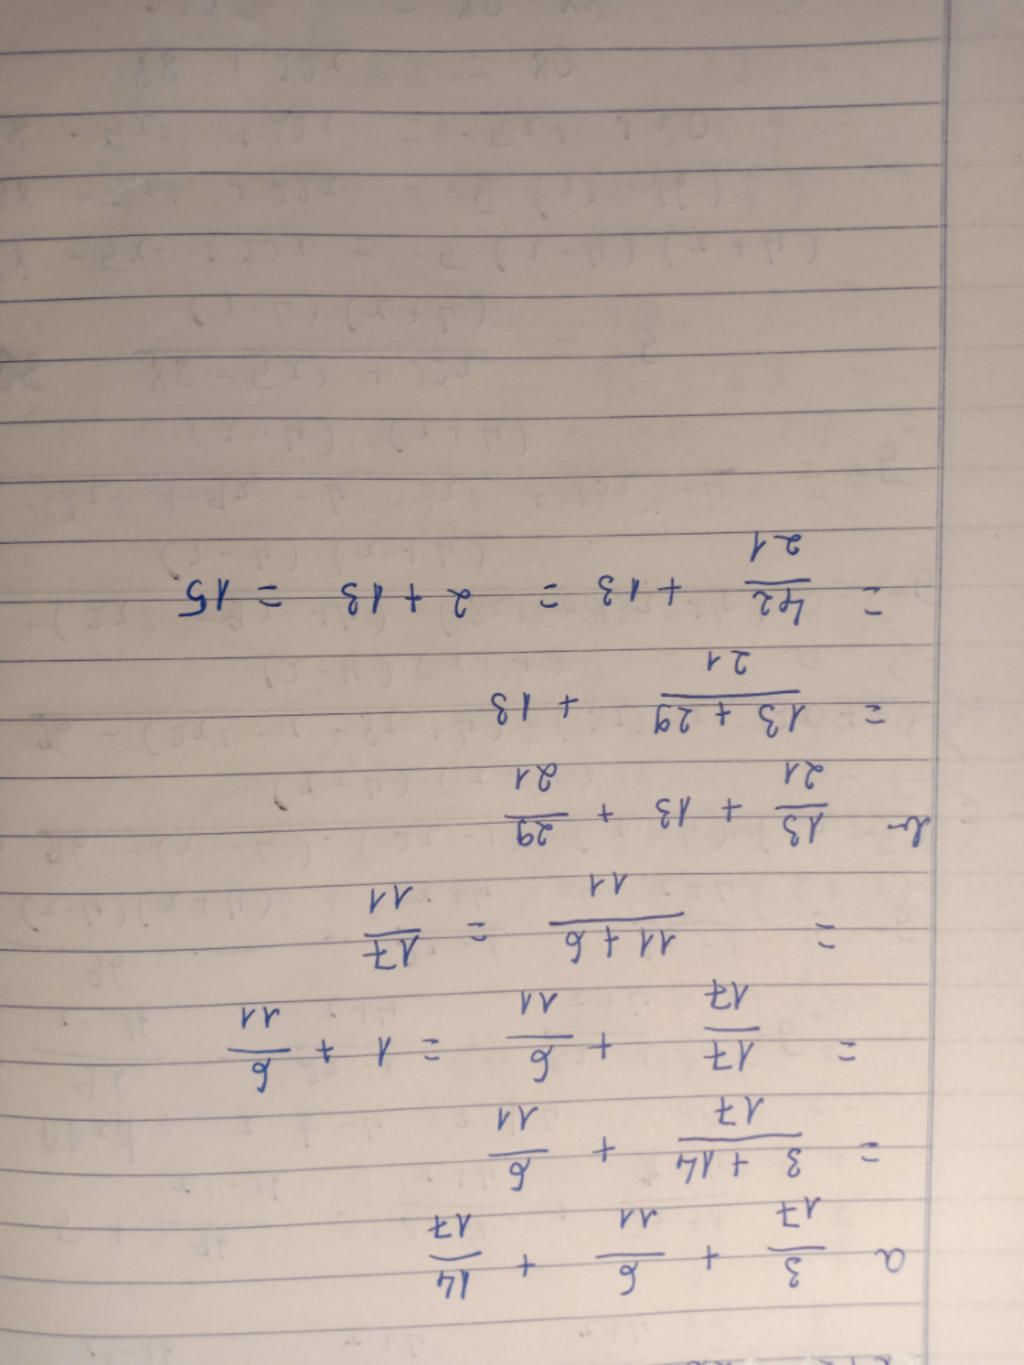 a 3/17 + 6/11 + 14/17
= (3 + 14)/17 + 6/11
= 17/17 + 6/11 = 1 + 6/11
= (11 + 6)/11 = 17/11
b 13/21 + 13 + 29/21
= (13 + 29)/21 + 13
= 42/21 + 13 = 2 + 13 = 15